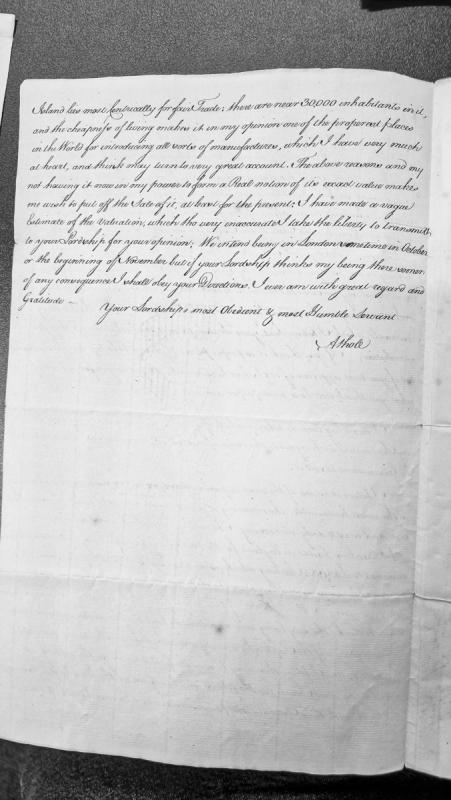 Island lies most Centrically for fair Trade; there are near 30,000 inhabitants in it,
and the cheapness of living makes it in my opinion one of the properest places
in the World for introducing all sorts of manufactures, which I have very much
at heart, and think may turn to very great account. The above reasons and my
not having it now in my power to form a Reall notion of its exact value makes
me wish to put off the Sale of it, at least for the present; I have made a vague
Estimate of the Valuation, which tho very inaccurate I take the liberty to transmitt,
to your Lordship for your opinion; We intend being in London sometime in October
or the beginning of November but if your Lordship thinks my being there sooner
of any consequence I shall obey your Directions. I ever am with great regard and
Gratitude
Your Lordships most Obedient & most Humble Servant
Atholl